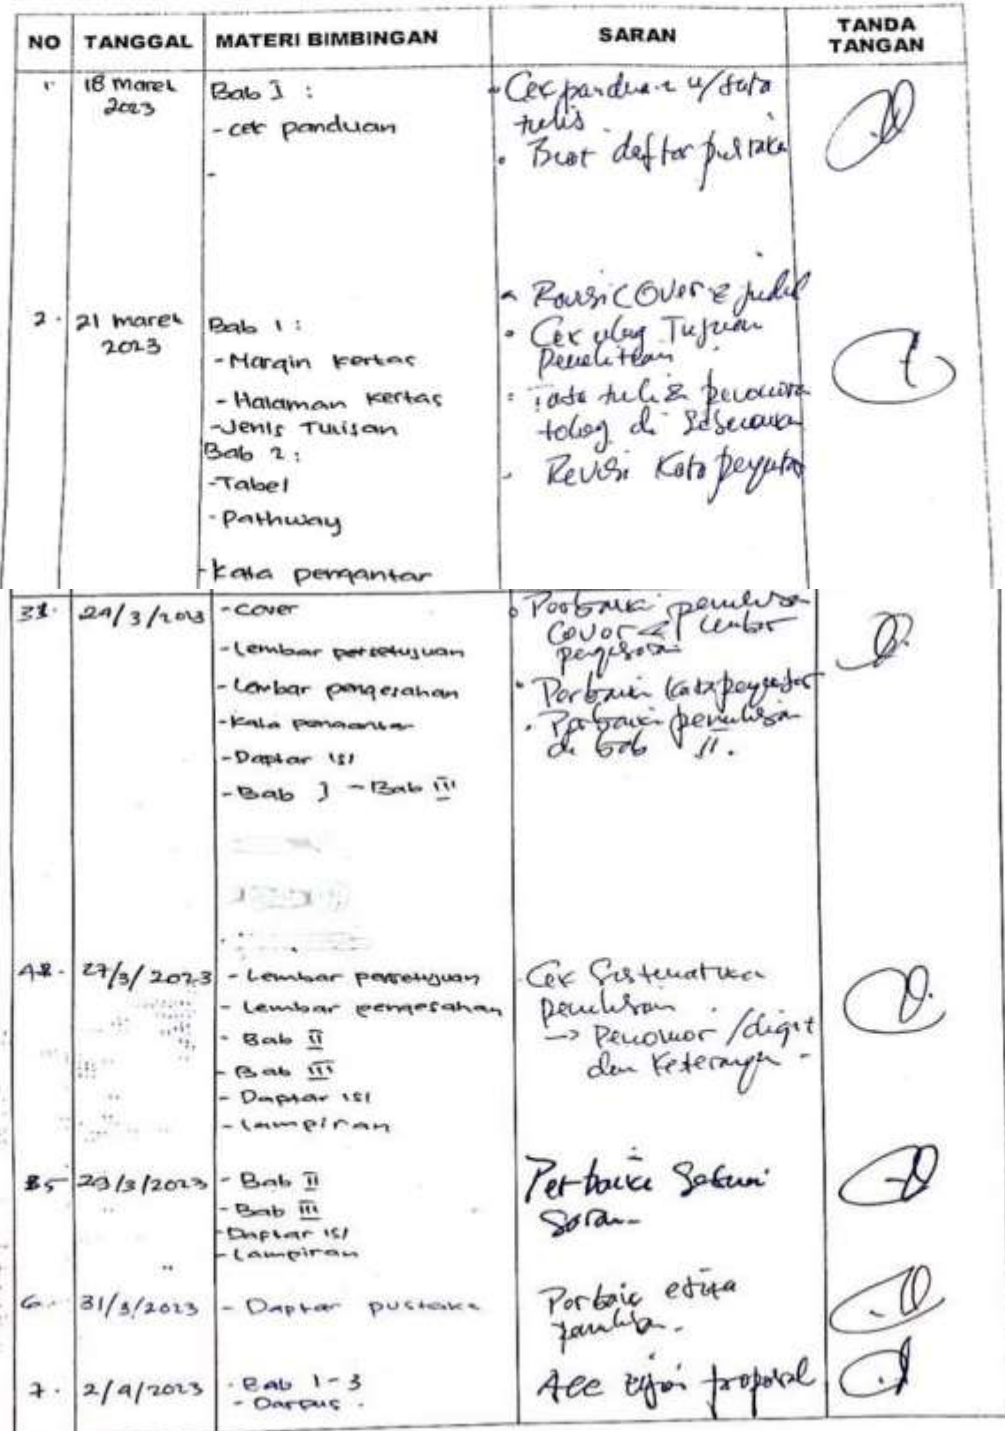 NO TANGGAL MATERI BIMBINGAN SARAN TANDA TANGAN
1. 18 Maret 2023
Bab I :
- cek panduan
-
• Cek panduan u/ tata
tulis
• Buat daftar pustaka
2. 21 maret 2023
Bab 1 :
- Margin kertas
- Halaman kertas
- Jenis Tulisan
Bab 2 :
- Tabel
- Pathway
- Kata pengantar
• Revisi Cover & judul
• Cek ulang Tujuan
Penelitian
• Tata tulis &
di
• Revisi Kata pengantar
3. 24/3/2023
- cover
- Lembar persetujuan
- Lembar pengesahan
- Kata pengantar
- Daptar isi
- Bab I - Bab III
• Perbaiki penulisan
Cover & lembar
pengesahan
• Perbaiki Kata pengantar
• Perbaiki penulisan
di bab II.
4. 27/3/2023
- Lembar persetujuan
- Lembar pengesahan
- Bab II
- Bab III
- Daptar isi
- Lampiran
Cek Sistematika
penulisan
-> Penomor /digit
dan Keterangan -
5 29/3/2023
- Bab II
- Bab III
- Daptar isi
- Lampiran
Perbaiki Sesuai
Saran-
6. 31/3/2023
- Daptar pustaka
Perbaiki
penulisan-
7. 2/4/2023
- Bab 1-3
- Darpus.
Acc ujian proposal